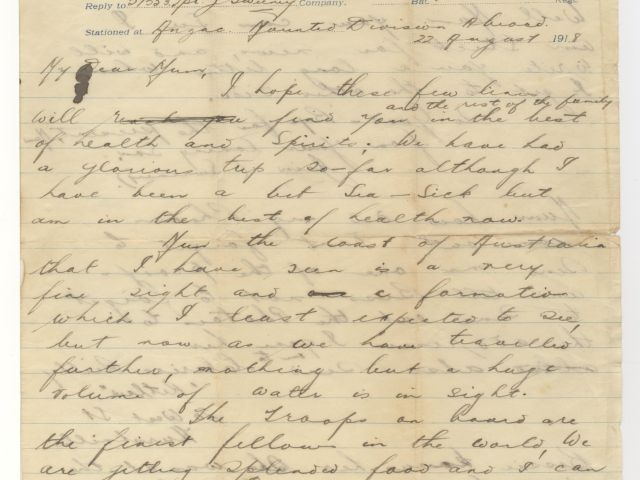 Reply to 57323, Tpr J Sweeny Company. Bat. Regt.
Stationed at Anzac Mounted Division Abroad.
22 August 1918
My Dear Mum,
I hope these few lines
will find you and the rest of the family in the best
of health and Spirits; We have had
a glorious trip so-far although I
have been a bit Sea-Sick but
am in the best of health now.
Mum the coast of Australia
that I have seen is a very
fine sight and a formation
which I least expected to see,
but now as we have travelled
further, nothing but a huge
volume of water is in sight.
The Troops on board are
the finest fellows in the world, We
are getting splended food and I can